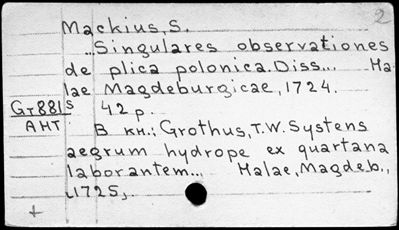 2
Mackius, S.
...Singulares observationes
de plica polonica. Diss... Ha-
lae Magdeburgicae, 1724.
Gr881s
42 p.
AHT
В кн.: Grothus, T.W. Systens
aegrum hydrope ex quartana
laborantem... Halae, Magdeb.,
1725,
+